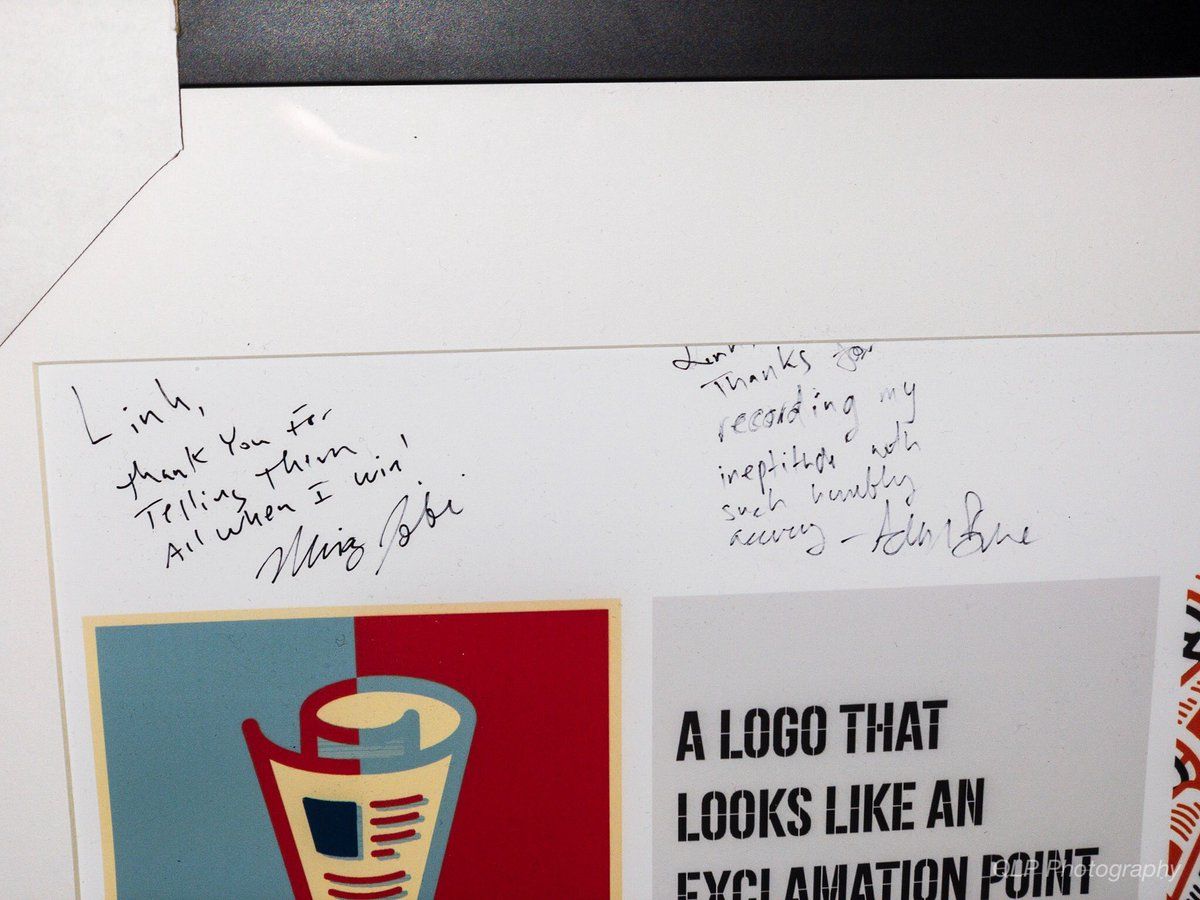 Linh,
Thank You For
Telling Them
All When I win!
Thanks for
recording my
ineptitude with
such humbling
accuracy -
A LOGO THAT
LOOKS LIKE AN
EXCLAMATION POINT
©LP Photography